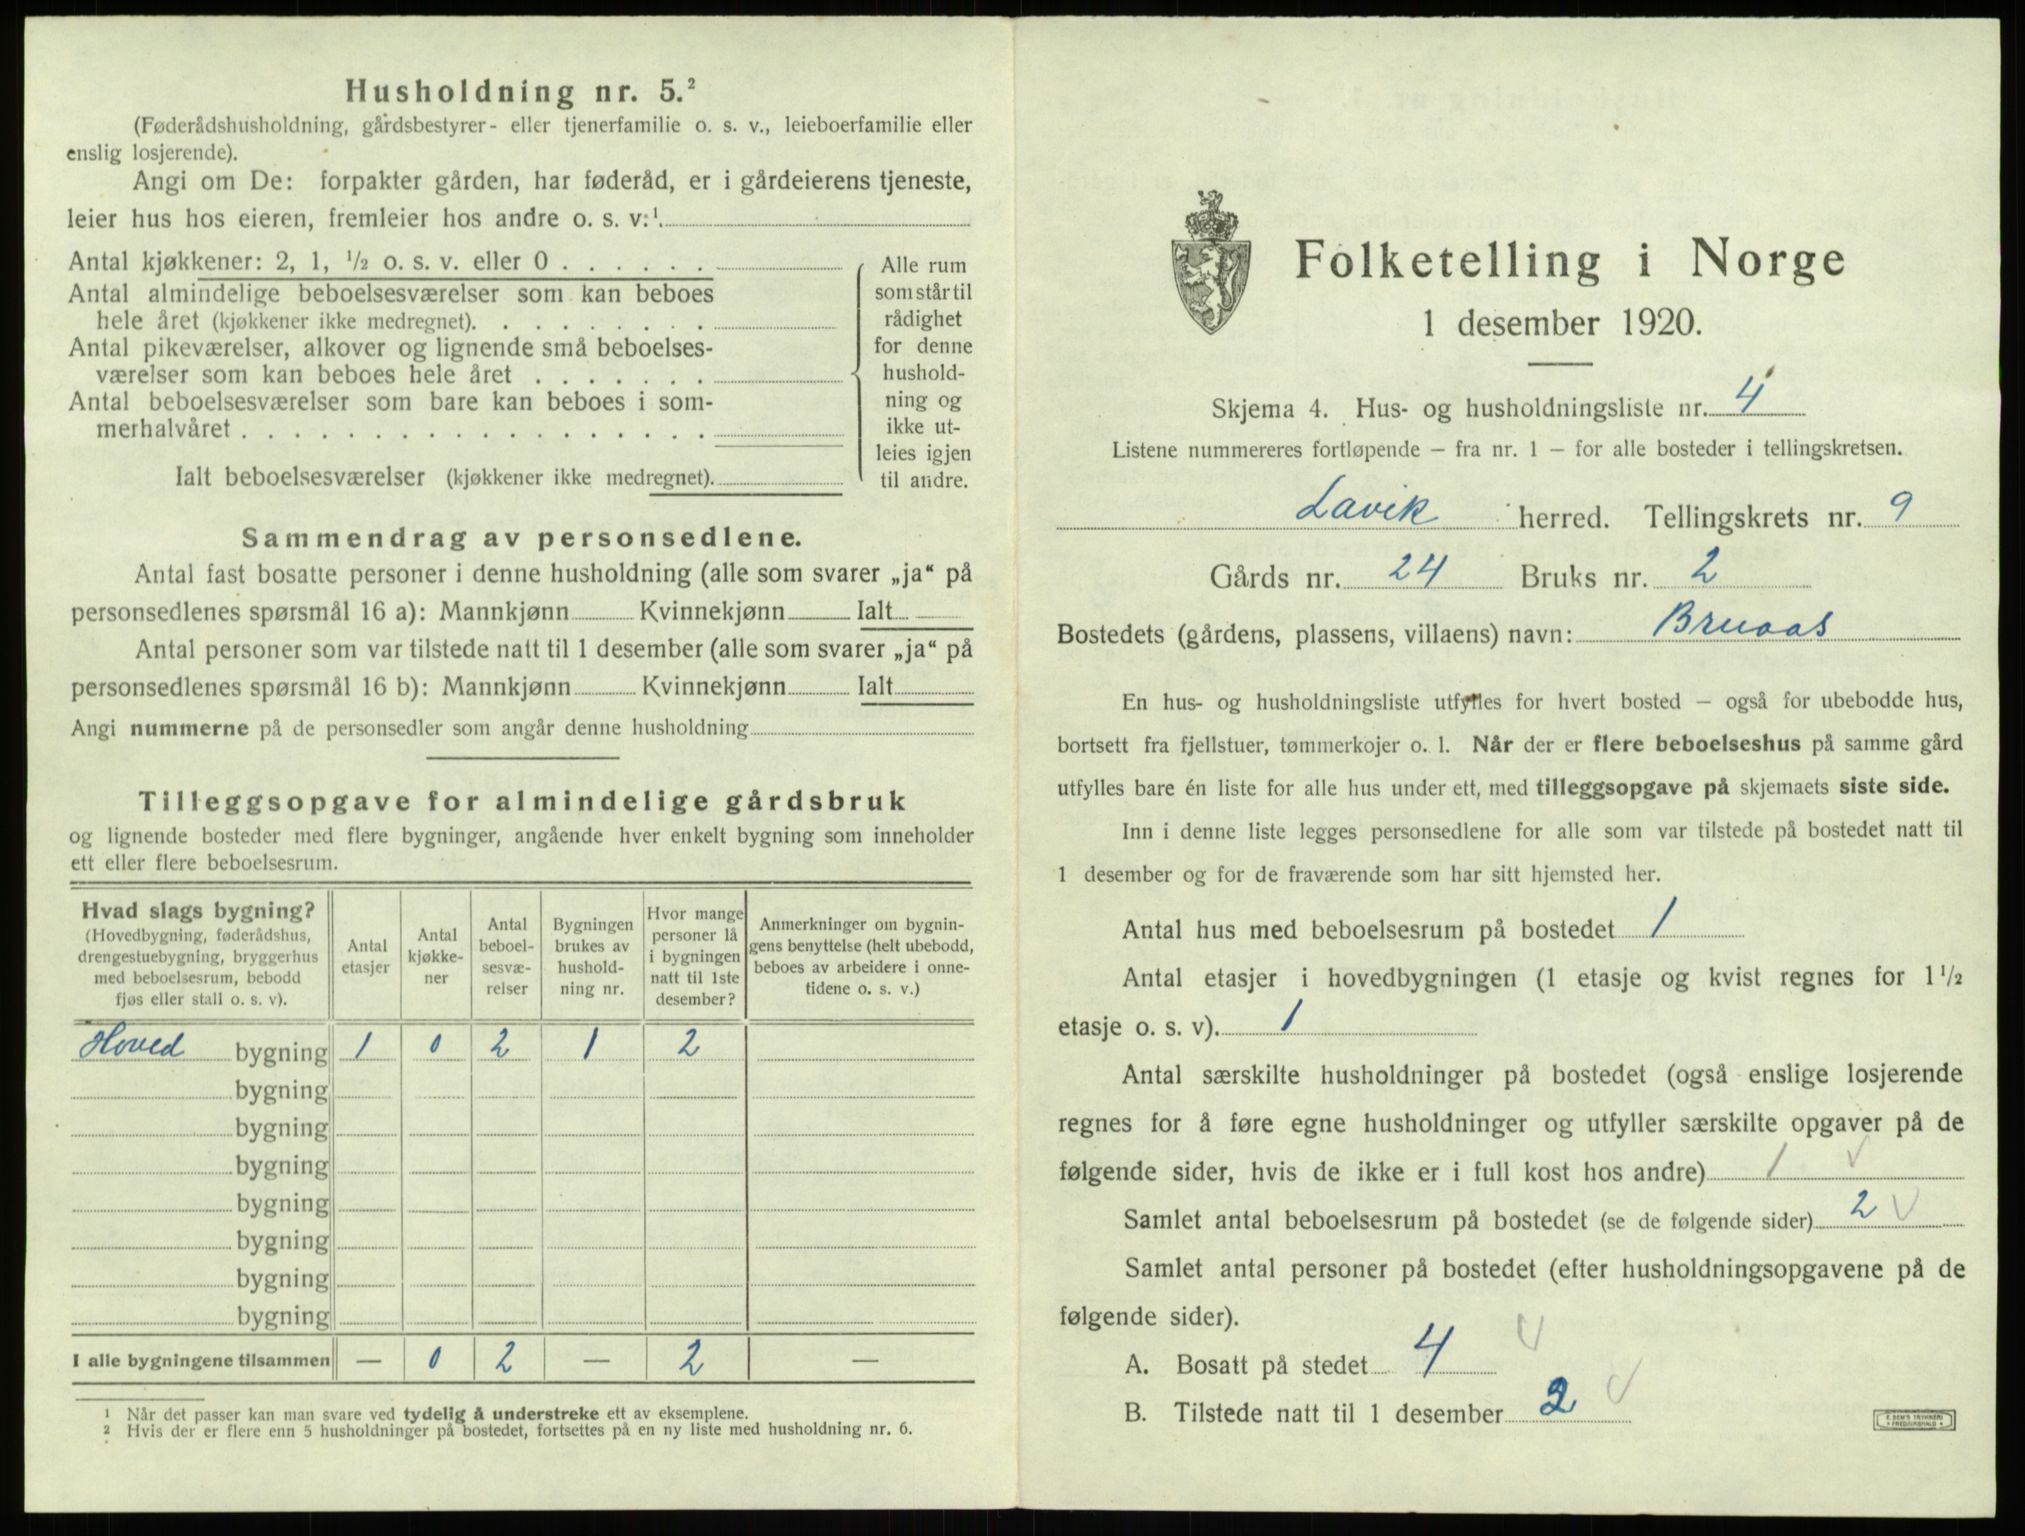 Husholdning nr. 5.²
(Føderådshusholdning, gårdsbestyrer- eller tjenerfamilie o. s. v., leieboerfamilie eller
enslig losjerende).
Angi om De: forpakter gården, har føderåd, er i gårdeierens tjeneste,
leier hus hos eieren, fremleier hos andre o. s. v:¹.
Antal kjøkkener: 2, 1, ½ o. s. v. eller 0 . . . . . .
Antal almindelige beboelsesværelser som kan beboes
hele året (kjøkkener ikke medregnet). . . . . . . . .
Antal pikeværelser, alkover og lignende små beboelses-
værelser som kan beboes hele året . . . . . . .
Antal beboelsesværelser som bare kan beboes i som-
merhalvåret . . . . . . . . . . . . . . . . . .
Ialt beboelsesværelser (kjøkkener ikke medregnet).
Alle rum
som står til
rådighet
for denne
hushold-
ning og
ikke ut-
leies igjen
til andre.
Sammendrag av personsedlene.
Antal fast bosatte personer i denne husholdning (alle som svarer „ja“ på
personsedlenes spørsmål 16 a): Mannkjønn Kvinnekjønn Ialt
Antal personer som var tilstede natt til 1 desember (alle som svarer „ja“ på
personsedlenes spørsmål 16 b): Mannkjønn Kvinnekjønn Ialt
Angi nummerne på de personsedler som angår denne husholdning
Tilleggsopgave for almindelige gårdsbruk
og lignende bosteder med flere bygninger, angående hver enkelt bygning som inneholder
ett eller flere beboelsesrum.
Hvad slags bygning?
(Hovedbygning, føderådshus,
drengestuebygning, bryggerhus
med beboelsesrum, bebodd
fjøs eller stall o. s. v).
Antal
etasjer
Antal
kjøkke-
ner
Antal
beboel-
sesvæ-
relser
Bygningen
brukes av
hushold-
ning nr.
Hvor mange
personer lå
i bygningen
natt til 1ste
desember?
Anmerkninger om bygnin-
gens benyttelse (helt ubebodd,
beboes av arbeidere i onne-
tidene o. s. v.)
Hoved bygning 1 0 2 1 2
bygning
bygning
bygning
bygning
bygning
bygning
bygning
I alle bygningene tilsammen — 0 2 — 2 —
¹ Når det passer kan man svare ved tydelig å understreke ett av eksemplene.
² Hvis der er flere enn 5 husholdninger på bostedet, fortsettes på en ny liste med husholdning nr. 6.
Folketelling i Norge
1 desember 1920.
Skjema 4. Hus- og husholdningsliste nr. 4
Listene nummereres fortløpende – fra nr. 1 – for alle bosteder i tellingskretsen.
Lavik herred. Tellingskrets nr. 9
Gårds nr. 24 Bruks nr. 2
Bostedets (gårdens, plassens, villaens) navn: Bruaas
En hus- og husholdningsliste utfylles for hvert bosted – også for ubebodde hus,
bortsett fra fjellstuer, tømmerkojer o. l. Når der er flere beboelseshus på samme gård
utfylles bare én liste for alle hus under ett, med tilleggsopgave på skjemaets siste side.
Inn i denne liste legges personsedlene for alle som var tilstede på bostedet natt til
1 desember og for de fraværende som har sitt hjemsted her.
Antal hus med beboelsesrum på bostedet 1
Antal etasjer i hovedbygningen (1 etasje og kvist regnes for 1 ½
etasje o. s. v). 1
Antal særskilte husholdninger på bostedet (også enslige losjerende
regnes for å føre egne husholdninger og utfyller særskilte opgaver på de
følgende sider, hvis de ikke er i full kost hos andre) 1 ✓
Samlet antal beboelsesrum på bostedet (se de følgende sider) 2 ✓
Samlet antal personer på bostedet (efter husholdningsopgavene på de
følgende sider).
A. Bosatt på stedet 4 ✓
B. Tilstede natt til 1 desember 2 ✓
E. SEM'S TRYKKERI
FREDRIKSHALD